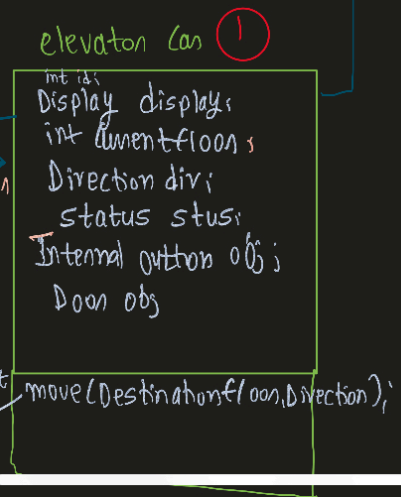 elevator Car 1
int id;
Display display;
int Currentfloor;
Direction dir;
status stus;
Internal button obj;
Door obj
move(Destinationfloor, Direction);